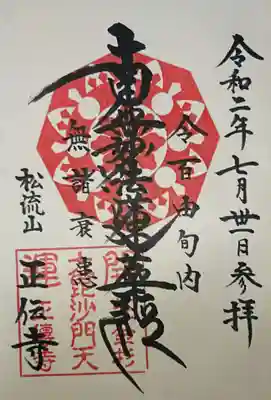 令和二年七月卅一日参拝
令百由旬内
南無妙法蓮華経
無諸衰患
松流山
正伝寺
開運
毘沙門天
正傳寺